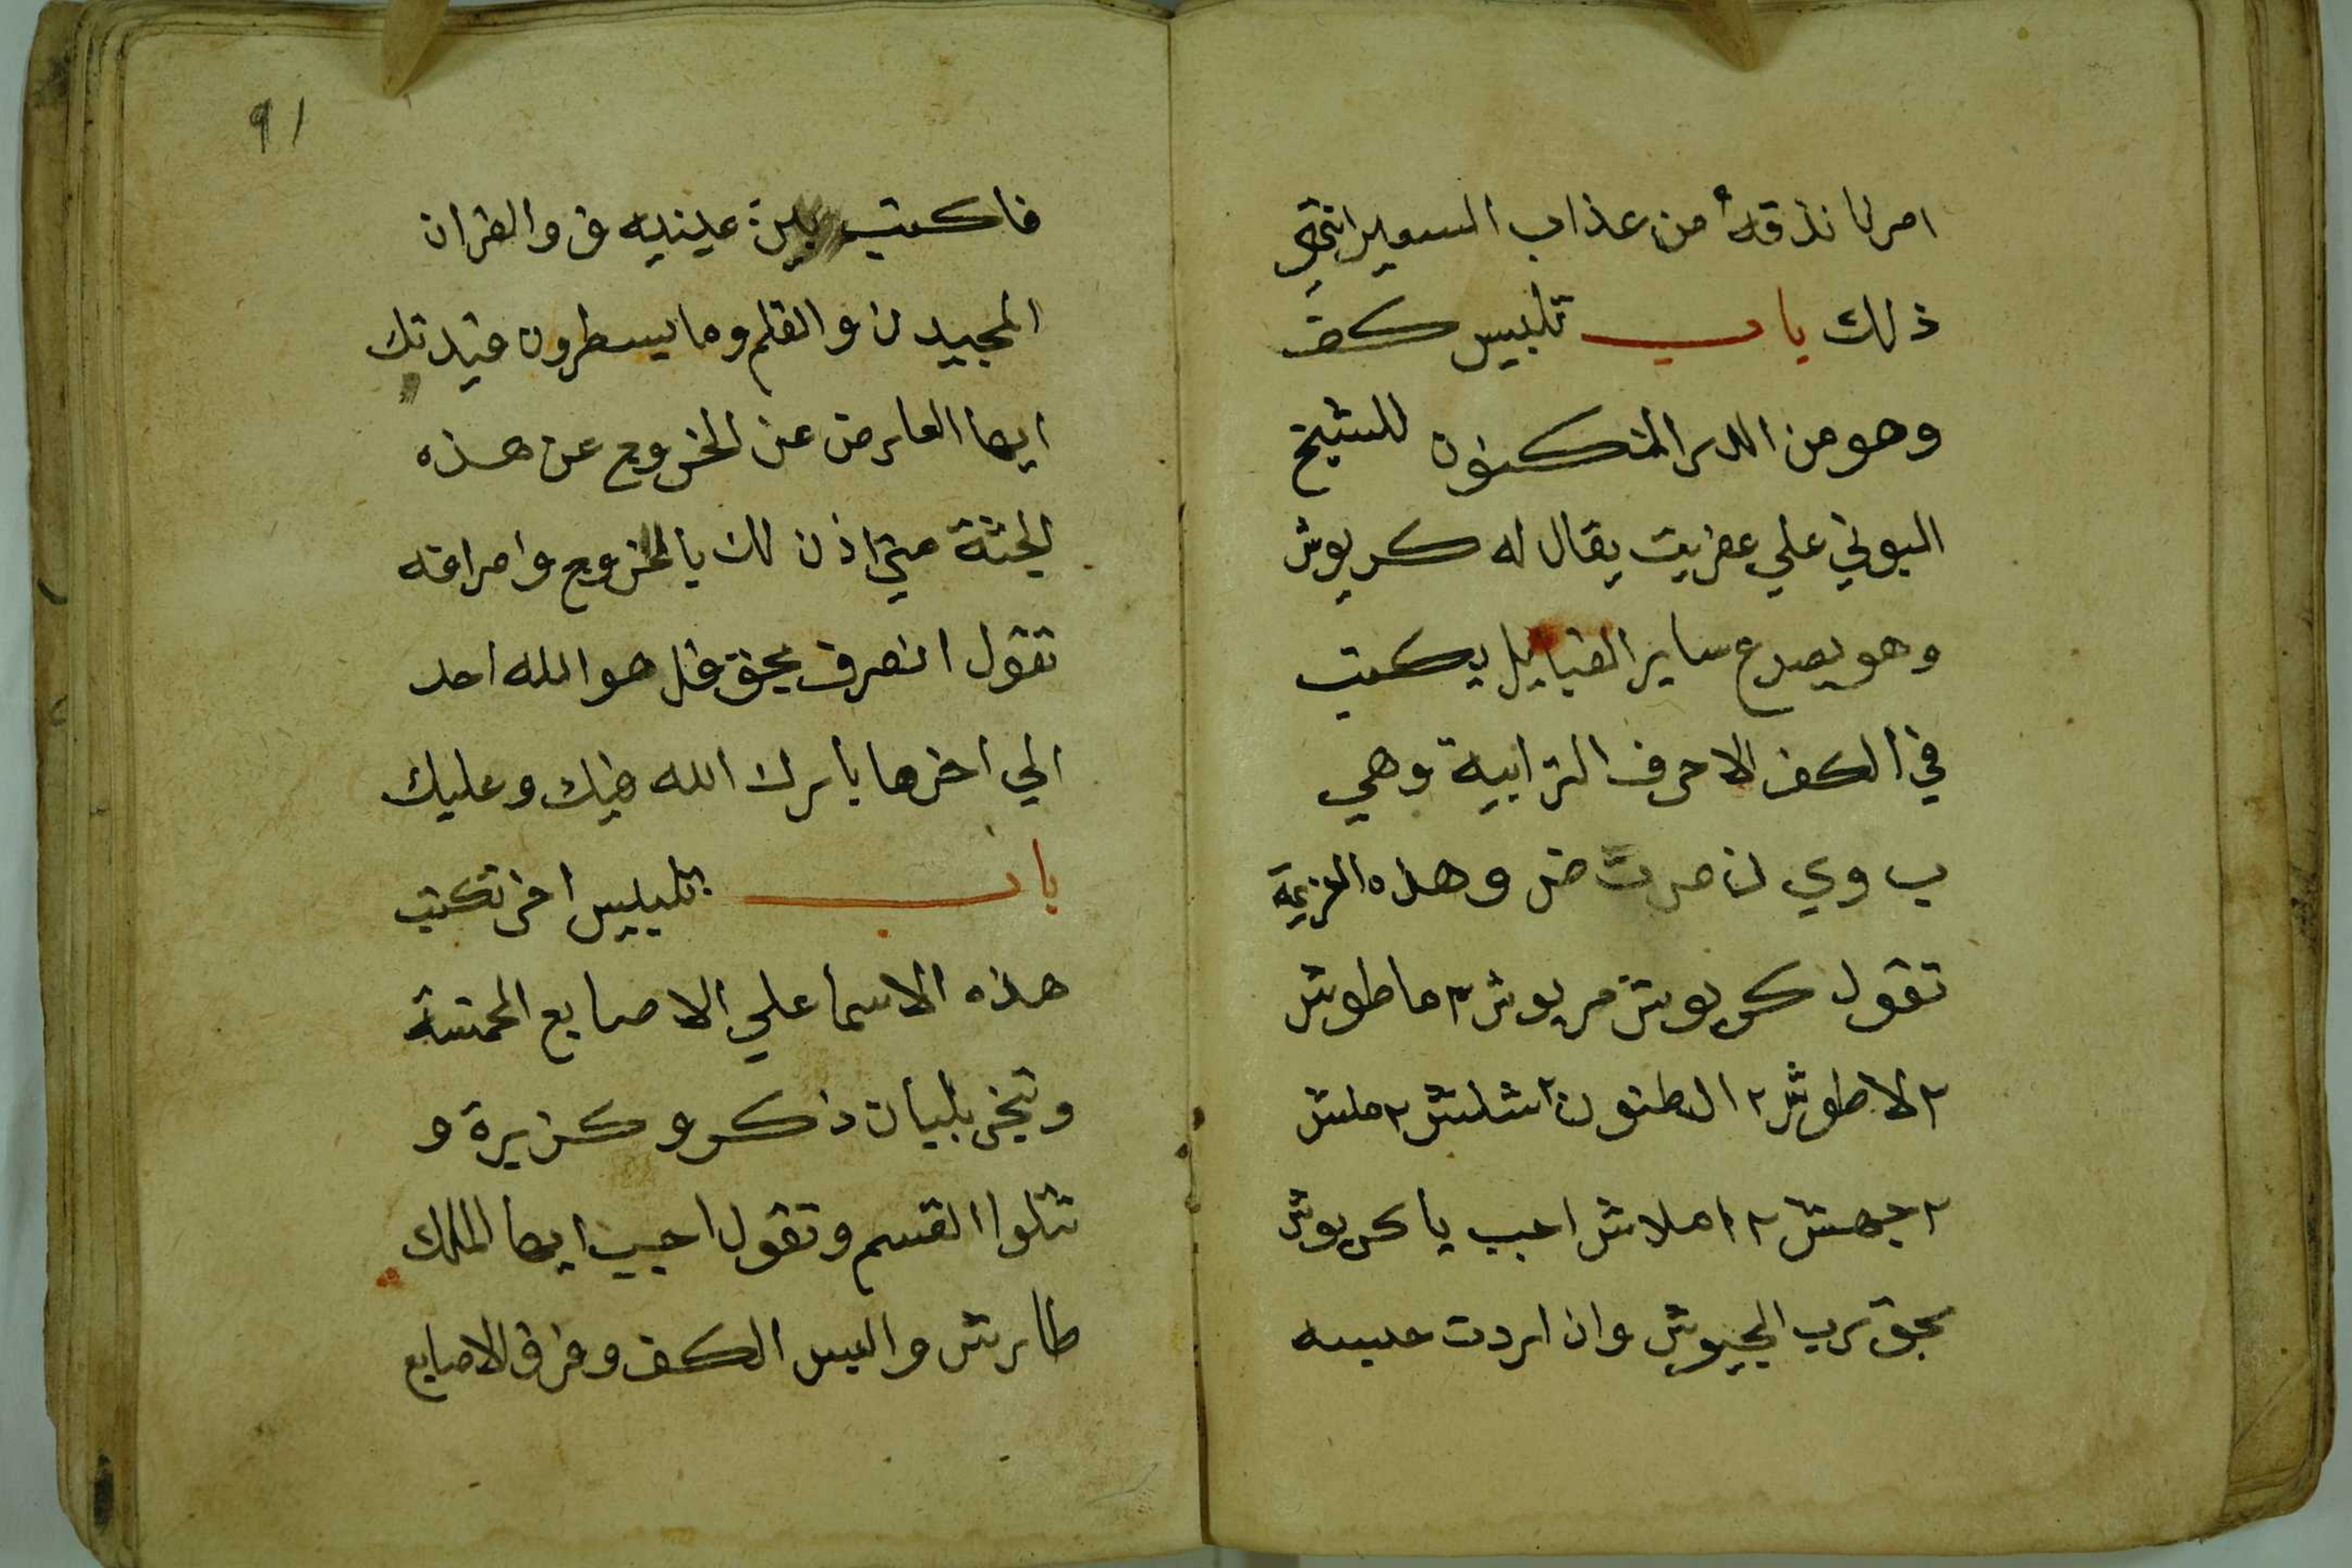 امرنا نذقه من عذاب السعير انتهي
ذلك باب تلبيس كف
وهو من الدر المكنون للشيخ
البوني علي عفريت يقال له كريوش
وهو يصرع ساير القبايل يكتب
في الكف الاحرف الترابية وهي
ب و ي ن ص ت ض وهذه العزيمة
تقول كريوش مريوش ٢ ماطوش
٢ لاطوش ٢ الطنون شلش ٢ ملش
٢ جهش ٢ املاش اجب يا كريوش
بحق رب الجيوش وان اردت حبسه
٩١
فاكتب بين عينيه ق والقران
المجيد ن والقلم وما يسطرون قيدتك
ايها العارض عن الخروج عن هذه
الجثة متي اذن لك بالخروج وامراقه
تقول انصرف بحق قل هو الله احد
الي اخرها بارك الله فيك وعليك
باب تلبيس اخر تكتب
هذه الاسما علي الاصابع الخمسة
وتبخر بلبان ذكر وكزبرة و
تتلوا القسم وتقول اجيب ايها الملك
طارش والبس الكف وفرق الاصابع